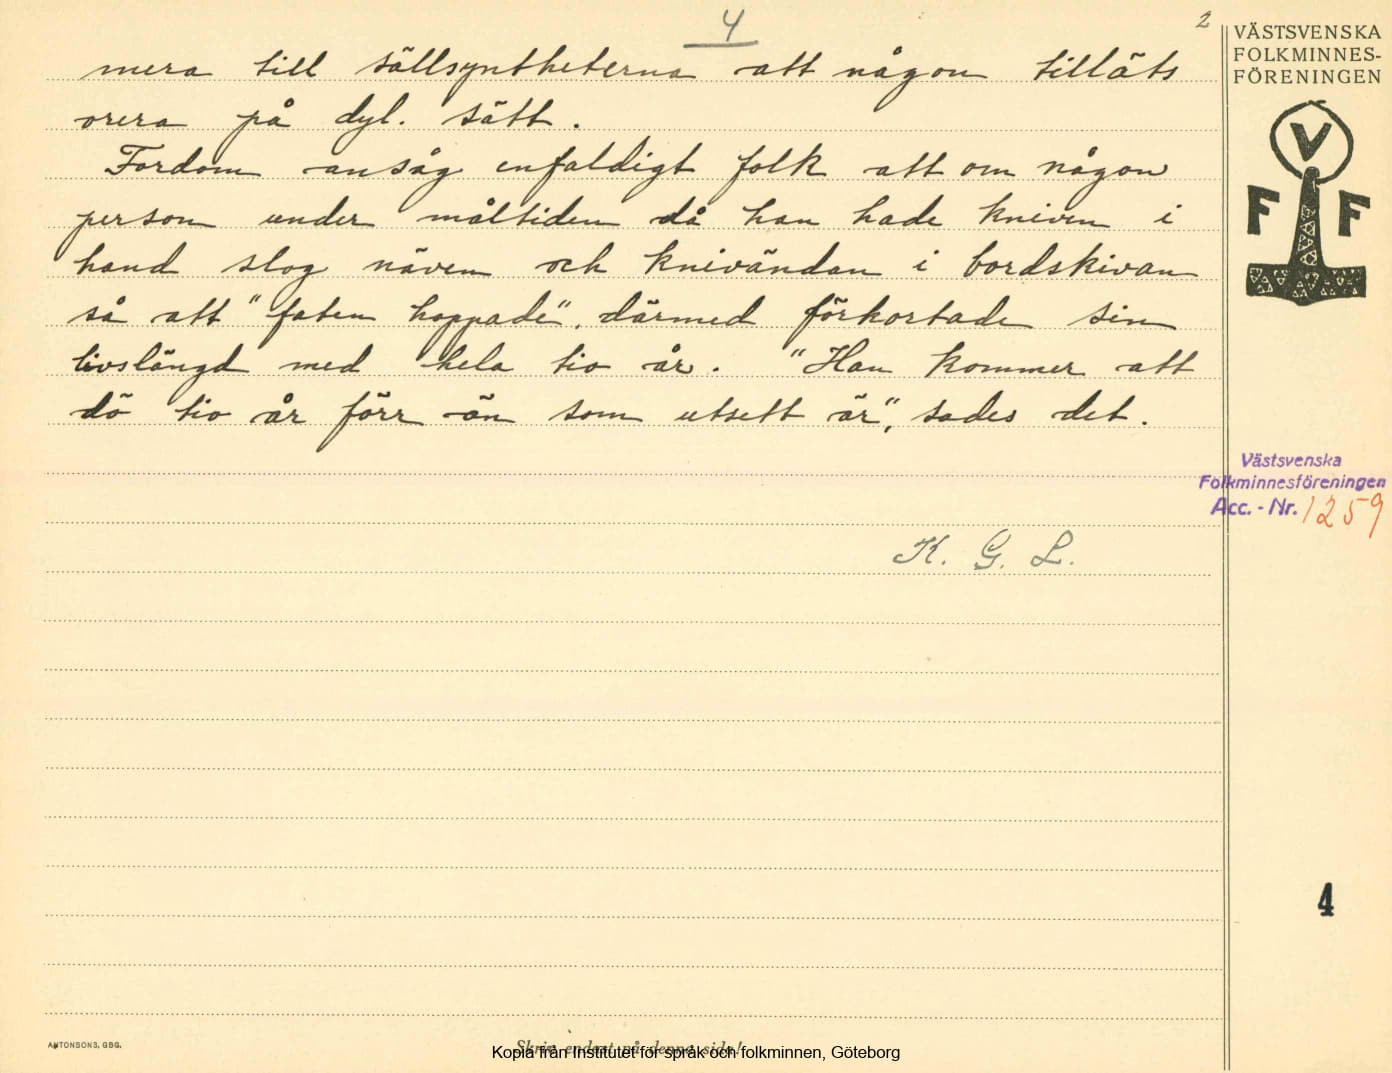 4
2
mera till sällsyntheterna att någon tilläts
orera på dyl. sätt.
Fordom ansåg enfaldigt folk att om någon
person under måltiden då han hade kniven i
hand slog näven och knivändan i bordskivan
så att "faten hoppade", därmed förkortade sin
livslängd med hela tio år. "Han kommer att
dö tio år förr än som utsett är", sades det.
K. G. L.
VÄSTSVENSKA
FOLKMINNES-
FÖRENINGEN
V
F F
Västsvenska
Folkminnesföreningen
Acc. - Nr. 1259
4
ANTONSONS, GBG.
Skriv endast på denna sida!
Kopia från Institutet för språk och folkminnen, Göteborg